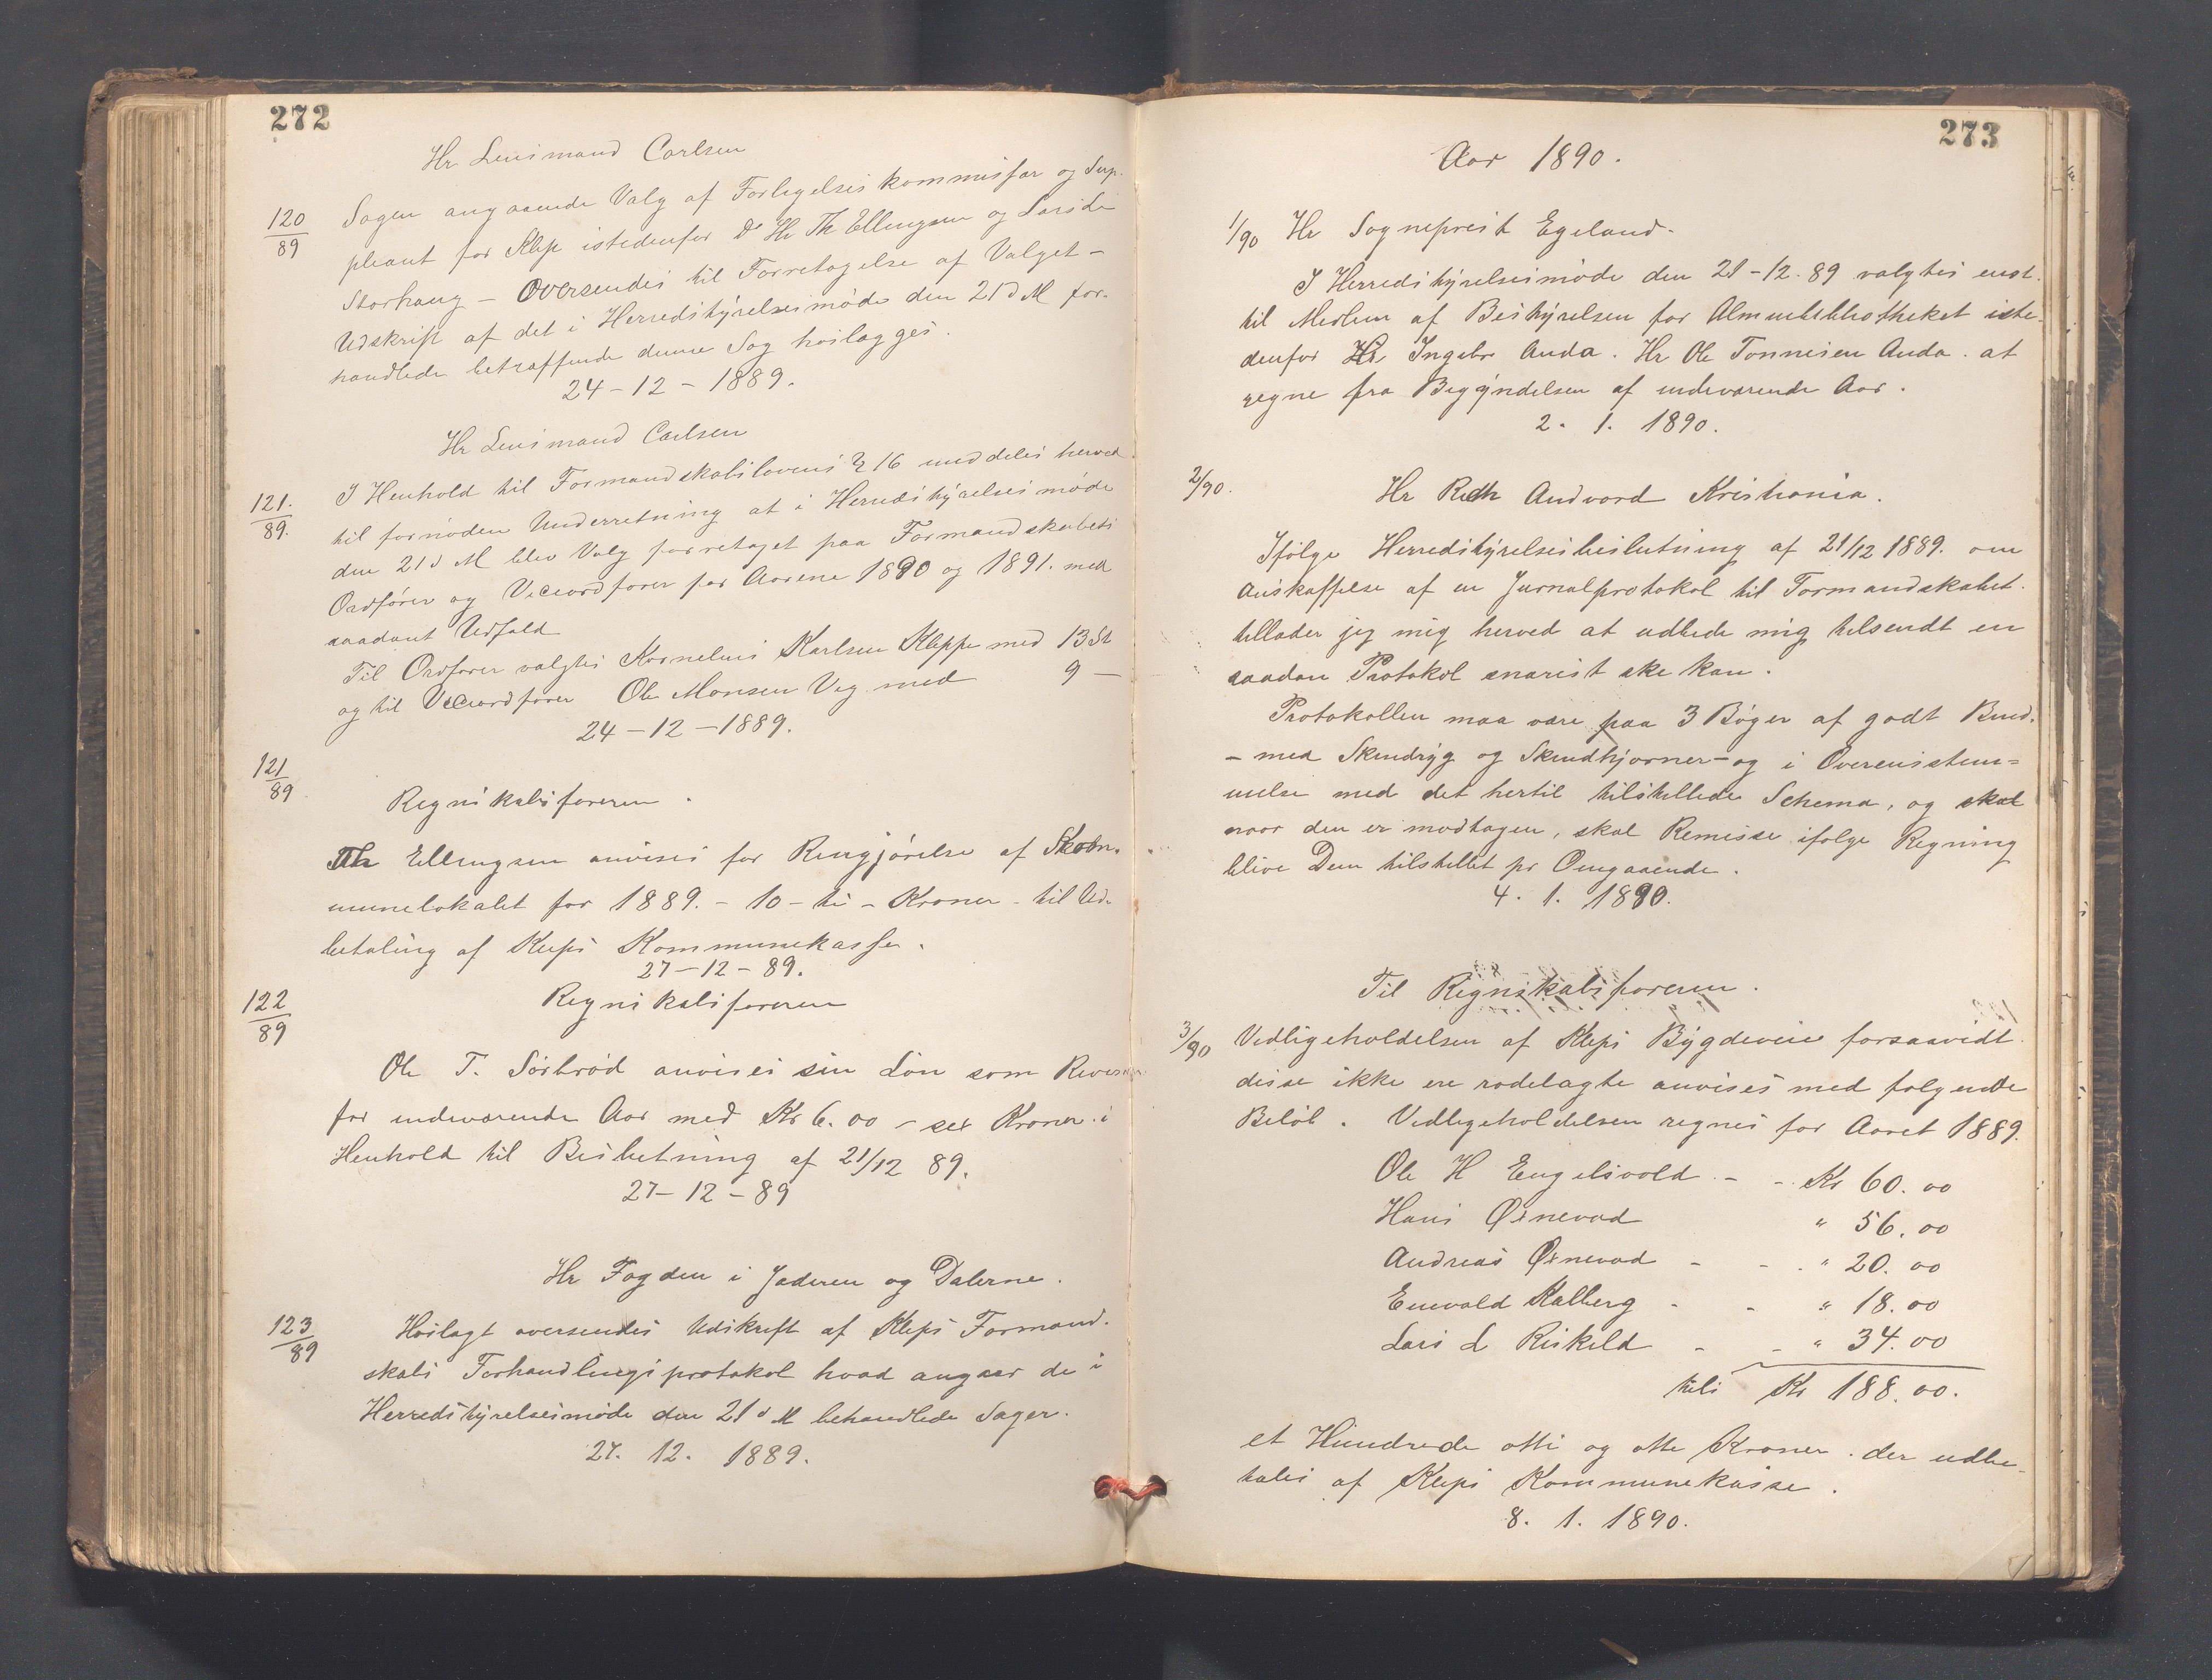 272
Hr Lensmand Carlsen
120/89 Sagen angaaende Valg af Forligelseskommissær og Sup-
pleant for Klep istedenfor Dr Hr Th Ellingsen og Lars L
Storhaug – Oversendes til Foretagelse af Valget –
Udskrift af det i Herredstyrelsesmøde den 21 d M for-
handlede betræffende denne Sag hoslægges.
24 – 12 – 1889.
Hr Lensmand Carlsen
121./89. I Henhold til Formandskabslovens § 16 meddeles herved
til fornøden Underretning at i Herredstyrelsesmøde
den 21 d M blev Valg foretaget paa Formandskabets
Ordfører og Viceordfører for Aarene 1890 og 1891. med
saadant Udfald
Til Ordfører valgtes Kornelius Karlsen Kleppe med 13 St
og til Viceordfører Ole Monsen Vig med 9 –
24 – 12 – 1889.
121/89
Regnskabsføreren.
Th Ellingsen anvises for Rengjørelse af Kom-
munelokalet for 1889. – 10 – ti – Kroner – til Ud-
betaling af Kleps Kommunekasse.
27 – 12 – 89.
122/89 Regnskabsføreren
Ole T. Sørbrød anvises sin Løn som Revisor
for indeværende Aar med Kr 6.00 – sex Kroner i
Henhold til Beslutning af 21/12 89.
27 – 12 – 89
Hr Fogden i Jæderen og Dalerne.
123/89 Hoslagt oversendes Udskrift af Kleps Formand-
skabs Forhandlingsprotokol hvad angaar de i
Herredstyrelsesmøde den 21 d M behandlede Sager.
27. 12. 1889.
273
Aar 1890.
1/90 Hr Sogneprest Egeland.
I Herredstyrelsesmøde den 21 – 12. 89 valgtes enst.
til Medlem af Bestyrelsen for Almuebibliotheket iste-
denfor Hr Ingebr Anda. Hr Ole Tønnesen Anda. at
regne fra Begyndelsen af indeværende Aar.
2. 1. 1890.
2/90. Hr Rich Andvord Kristiania.
Ifølge Herredstyrelsesbeslutning af 21/12 1889. om
Anskaffelse af en Jurnalprotokol til Formandskabet.
tillader jeg mig herved at udbede mig tilsendt en
saadan Protokol snarest ske kan.
Protokollen maa være paa 3 Bøger af godt Bind.
– med Skindryg og Skindhjørner – og i Overensstem=
melse med det hertil tilstillede Schema, og skal
naar den er modtagen, skal Remisse ifølge Regning
blive Dem tilstillet pr Omgaaende.
4. 1. 1890.
Til Regnskabsføreren.
3/90 Vedligeholdelsen af Kleps Bygdeveie forsaavidt
disse ikke ere rodelagte anvises med følgende
Beløb. Vedligeholdelsen regnes for Aaret 1889.
Ole H Engelsvold – – Kr 60.00
Hans Øxnevad " 56.00
Andreas Øxnevad – – " 20.00
Enevald Kalberg – – " 18.00
Lars L Riskild – – " 34.00
tils Kr 188.00.
et Hundrede otti og otte Kroner. der udbe-
tales af Kleps Kommunekasse.
8. 1. 1890.